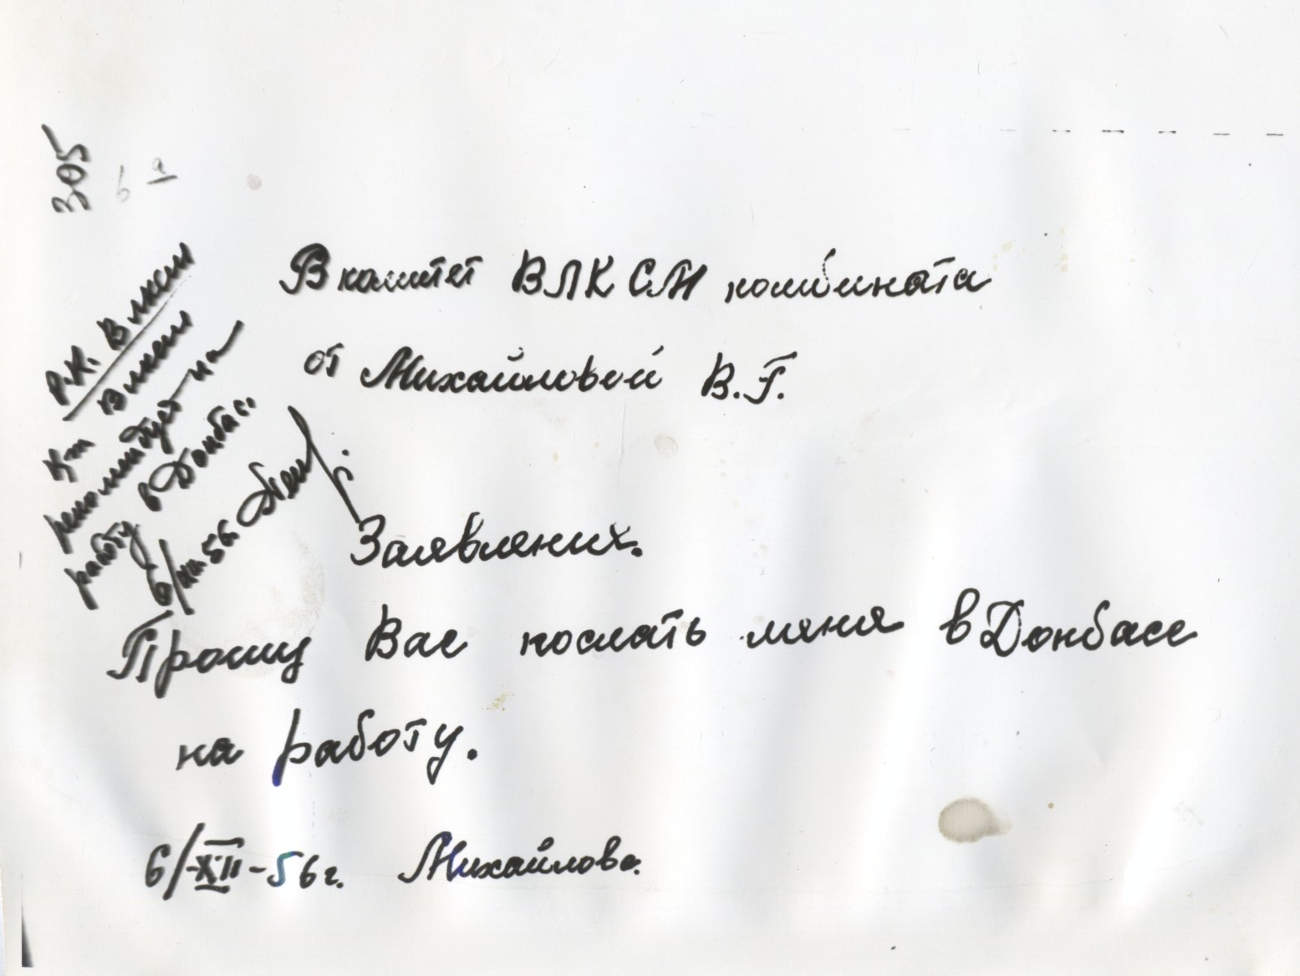 305
6 а
Р.К. Влксм
К-т Влксм
рекомендует на
работу в Донбас.
6/ 56.
В комитет ВЛКСМ комбината
от Михайловой В.Г.
Заявления.
Прошу Вас послать меня в Донбасс
на работу.
6/XII-56г. Михайлова.